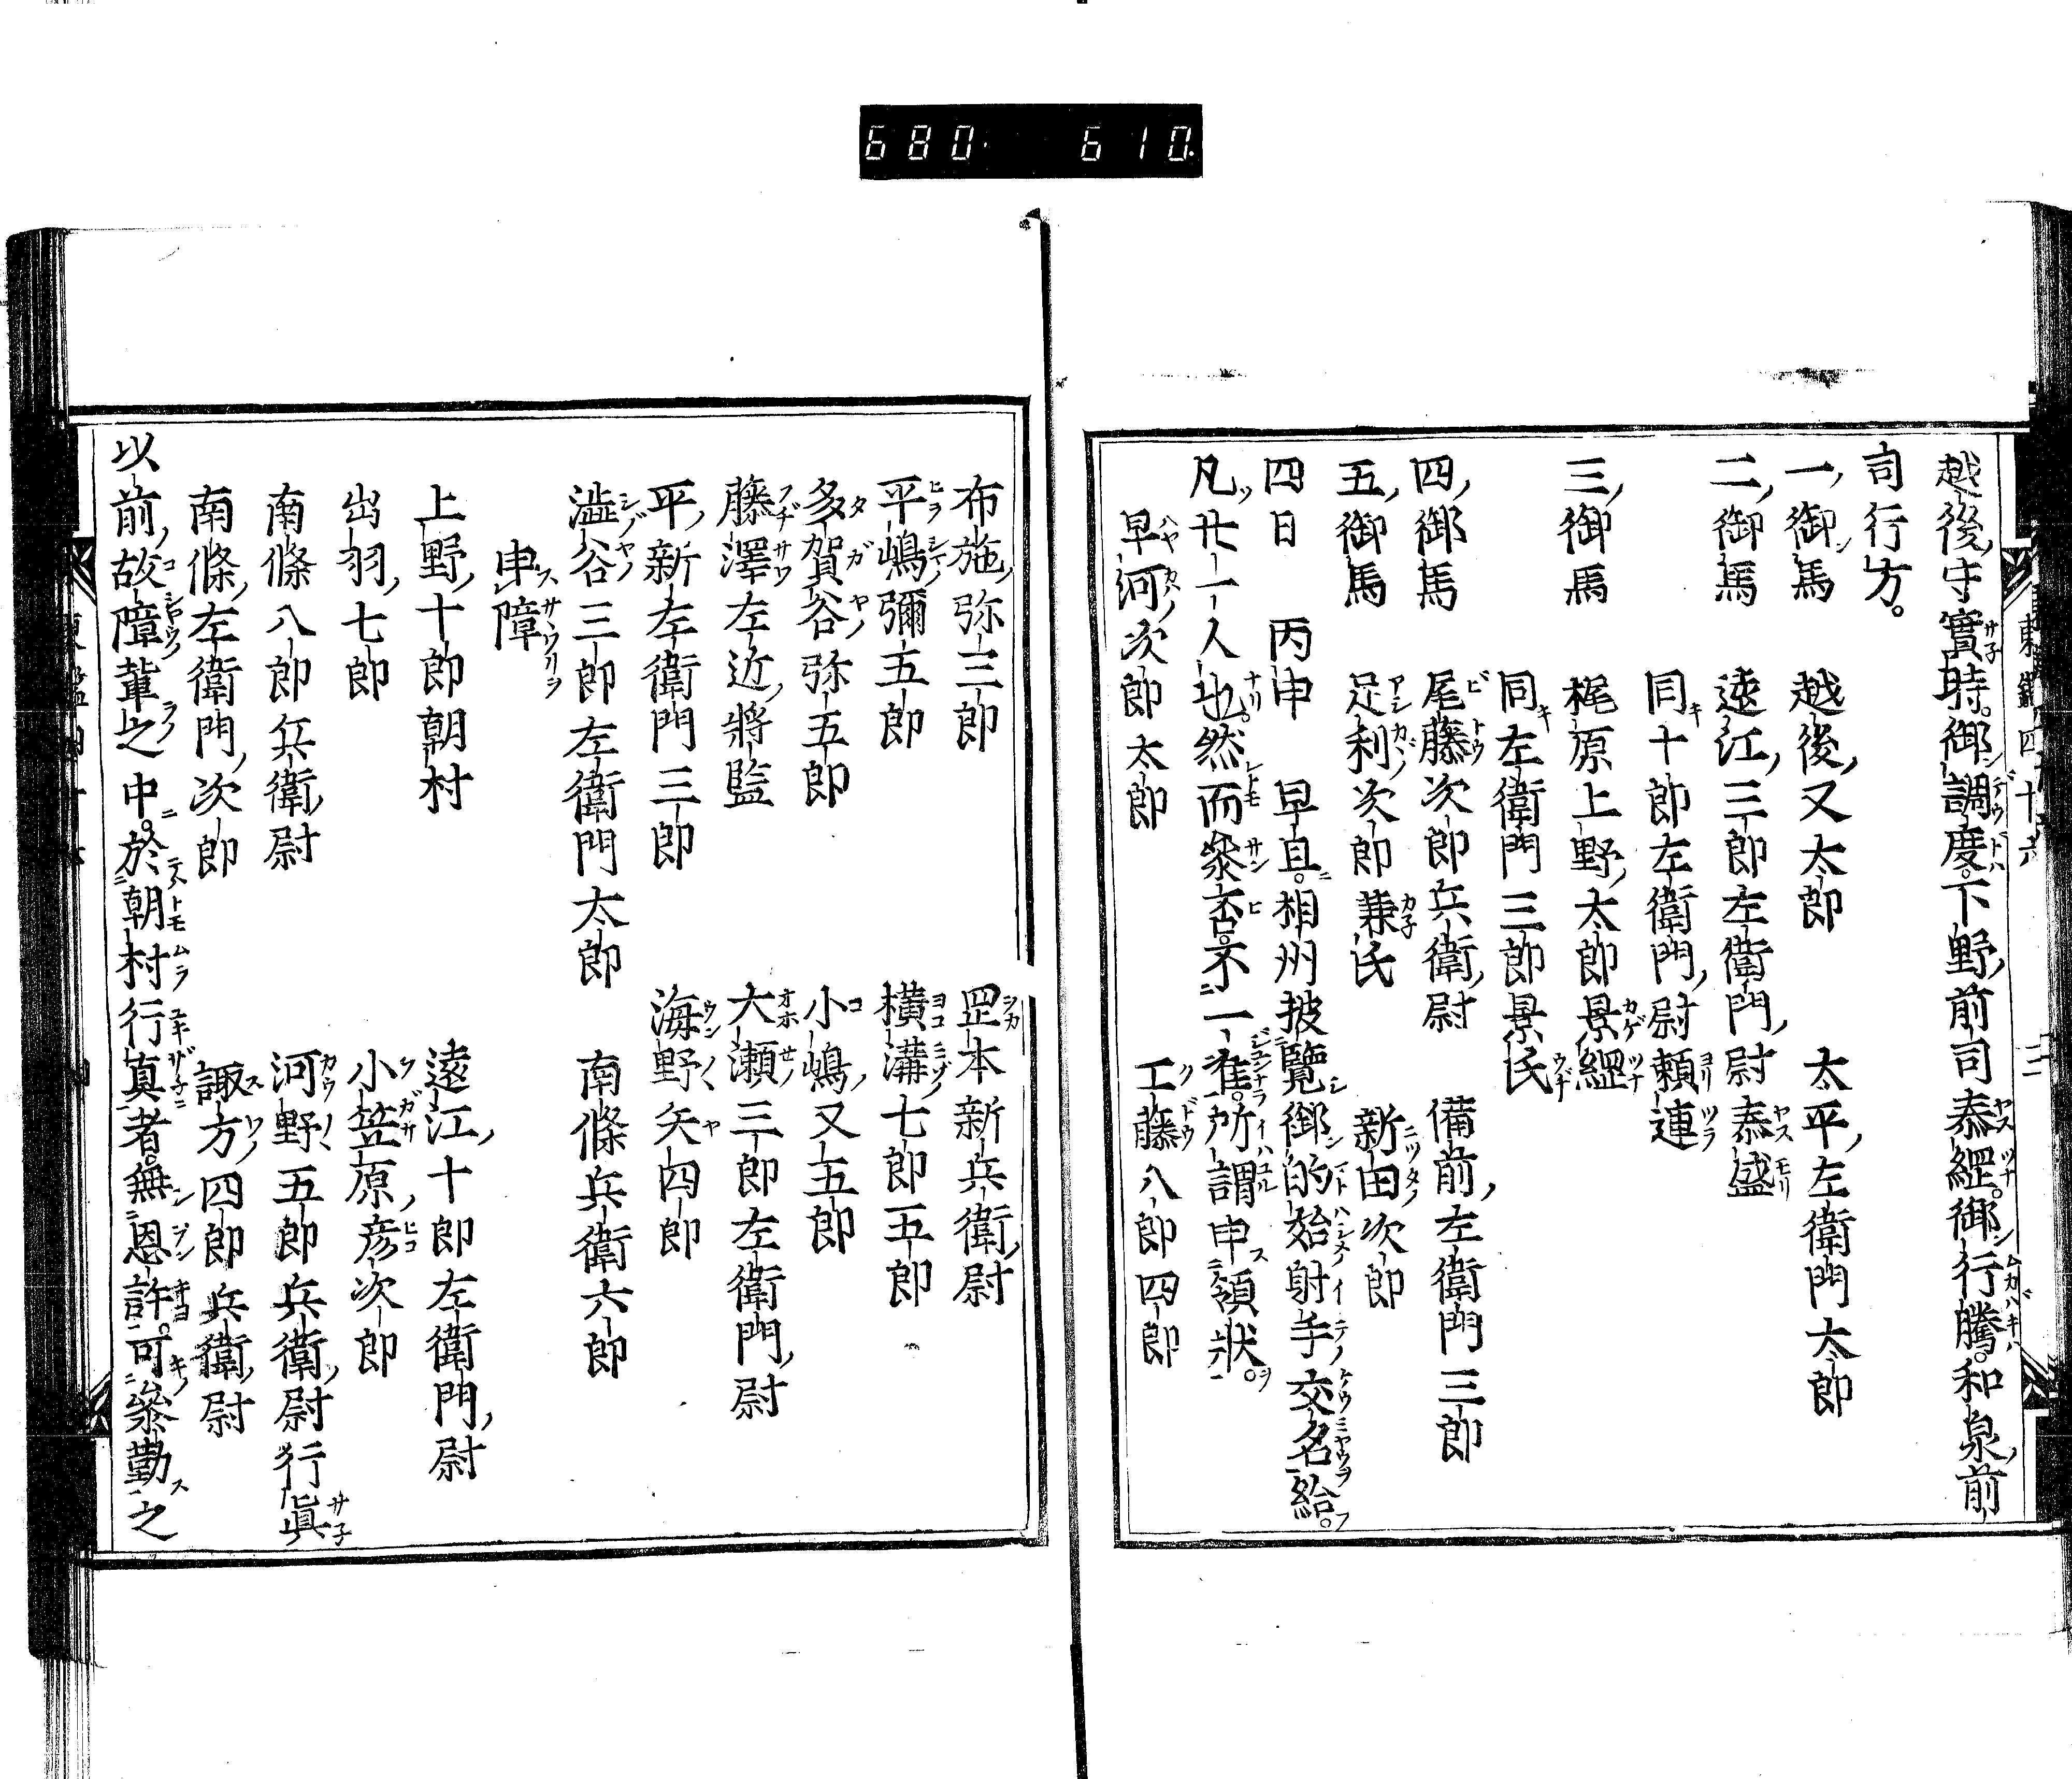 680. 610.
越後守實時。御調度。下野前司泰經。御行騰。和泉前
司行方。
一御馬 越後又太郎 太平左衛門太郎
二御馬 遠江三郎左衛門尉泰盛
同十郎左衛門尉頼連
三御馬 梶原上野太郎景經
同左衛門三郎景氏
四御馬 尾藤次郎兵衛尉 備前左衛門三郎
五御馬 足利次郎兼氏 新田次郎
四日 丙申 早旦。相州披覽御的始射手交名給。
凡廿一人也。然而參否不一准。所謂申領状。
早河次郎太郎 工藤八郎四郎
布施弥三郎 罡本新兵衛尉
平嶋彌五郎 横溝七郎五郎
多賀谷弥五郎 小嶋又五郎
藤澤左近將監 大瀬三郎左衛門尉
平新左衛門三郎 海野矢四郎
澁谷三郎左衛門太郎 南條兵衛六郎
申障
上野十郎朝村 遠江十郎左衛門尉
出羽七郎 小笠原彦次郎
南條八郎兵衛尉 河野五郎兵衛尉行眞
南條左衛門次郎 諏方四郎兵衛尉
以前故障輩之中。於朝村行真者。無恩許。可參勤之